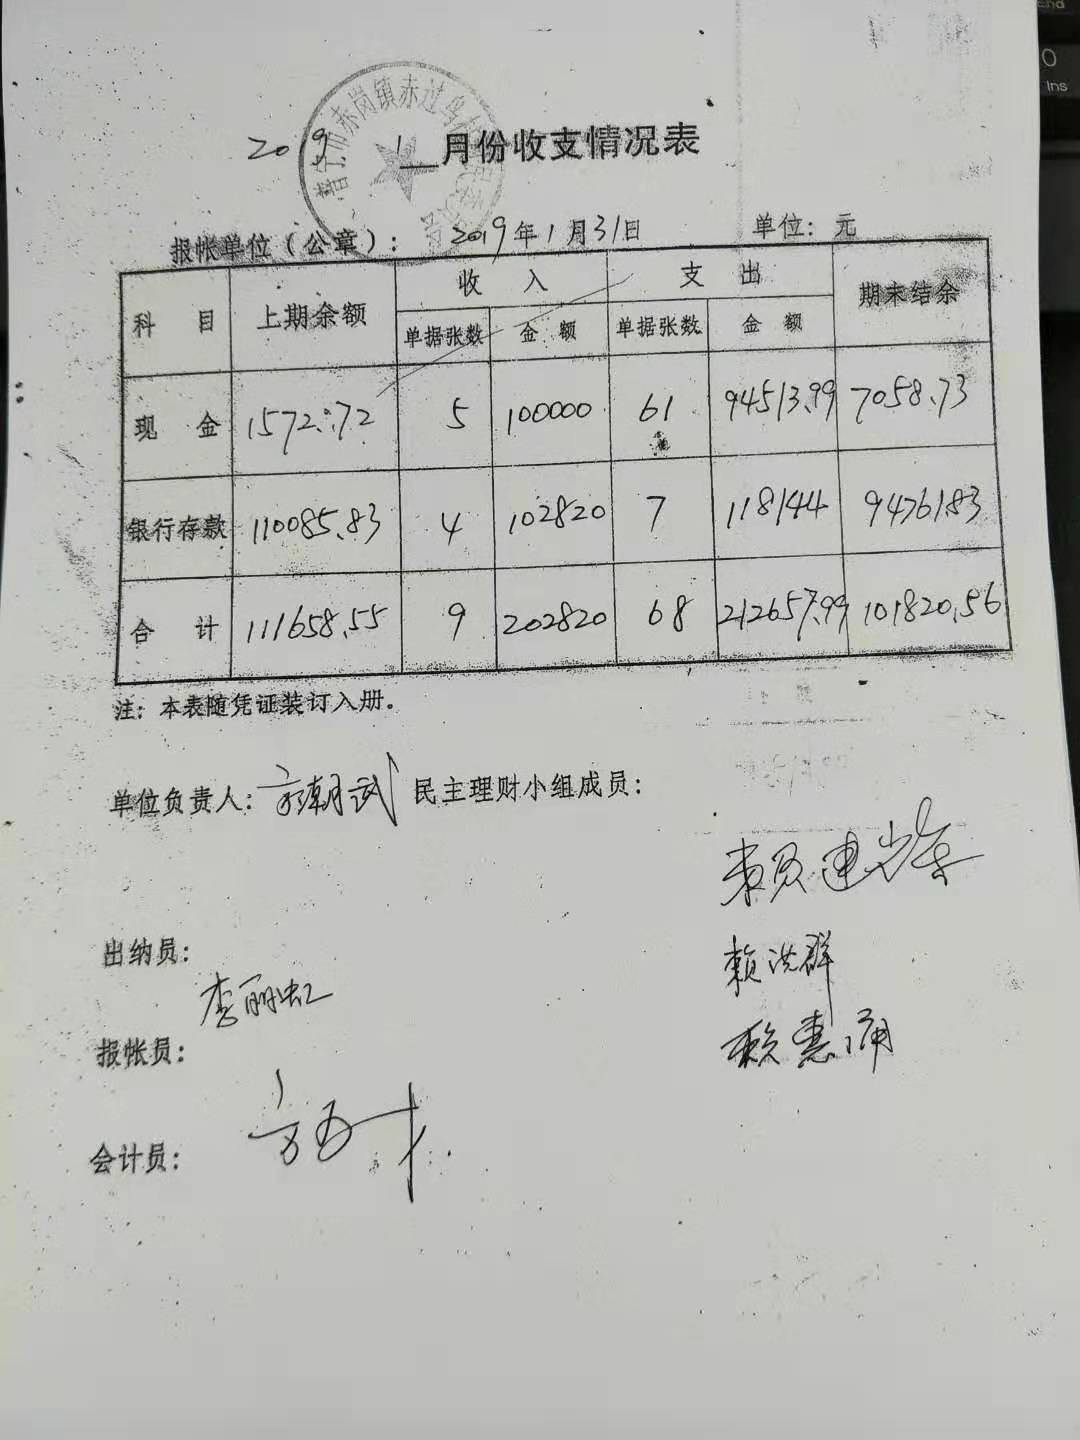 普宁市赤岗镇赤过乌村
2019 1 月份收支情况表
报帐单位（公章）： 2019年1月31日 单位：元
科目 上期余额 收入 支出 期末结余
单据张数 金额 单据张数 金额
现金 1572.72 5 100000 61 94513.99 7058.73
银行存款 110085.83 4 102820 7 118144 94761.83
合计 111658.55 9 202820 68 212657.99 101820.56
注：本表随凭证装订入册。
单位负责人：方朝武 民主理财小组成员：
赖建
出纳员：
赖洪群
李丽虹
报帐员：
赖惠涌
会计员：
End
0
Ins